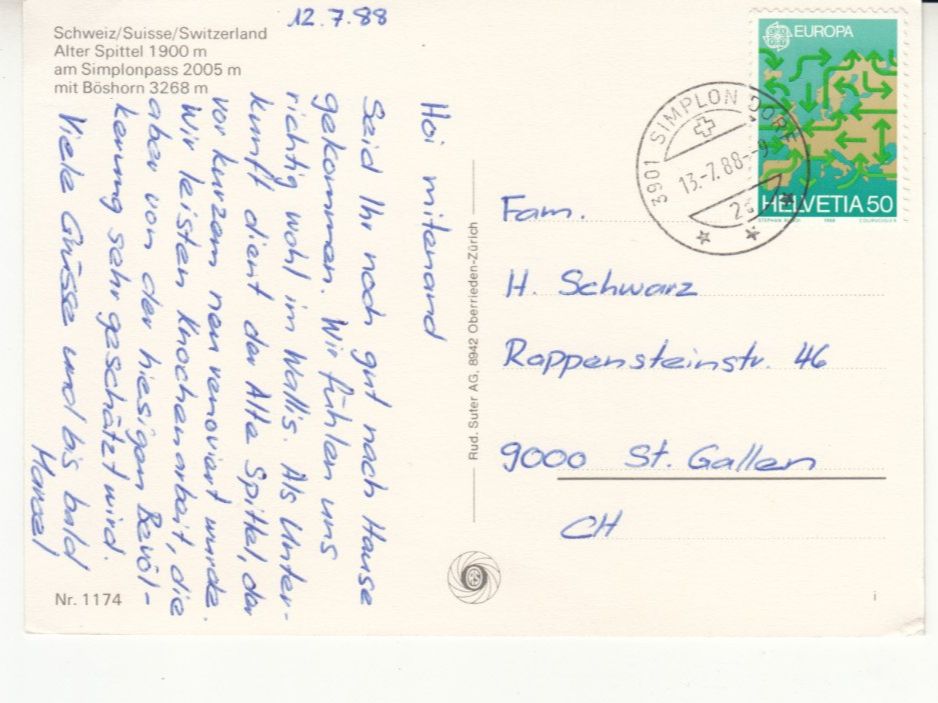 12.7.88
Schweiz/Suisse/Switzerland
Alter Spittel 1900 m
am Simplonpass 2005 m
mit Böshorn 3268 m
Hoi mitenand
Seid Ihr noch gut nach Hause
gekommen. Wir fühlen uns
richtig wohl im Wallis. Als Unter-
kunft dient der Alte Spittel, der
vor kurzem neu renoviert wurde.
Wir leisten Knochenarbeit, die
aber von der hiesigen Bevöl-
kerung sehr geschätzt wird.
Viele Grüsse und bis bald
Marcel
Nr. 1174
Rud. Suter AG, 8942 Oberrieden-Zürich
EUROPA
HELVETIA 50
1988
COURVOISIER
3901 SIMPLON DORF
13.-7.88.--9
Fam.
H. Schwarz
Rappensteinstr. 46
9000 St. Gallen
CH
i